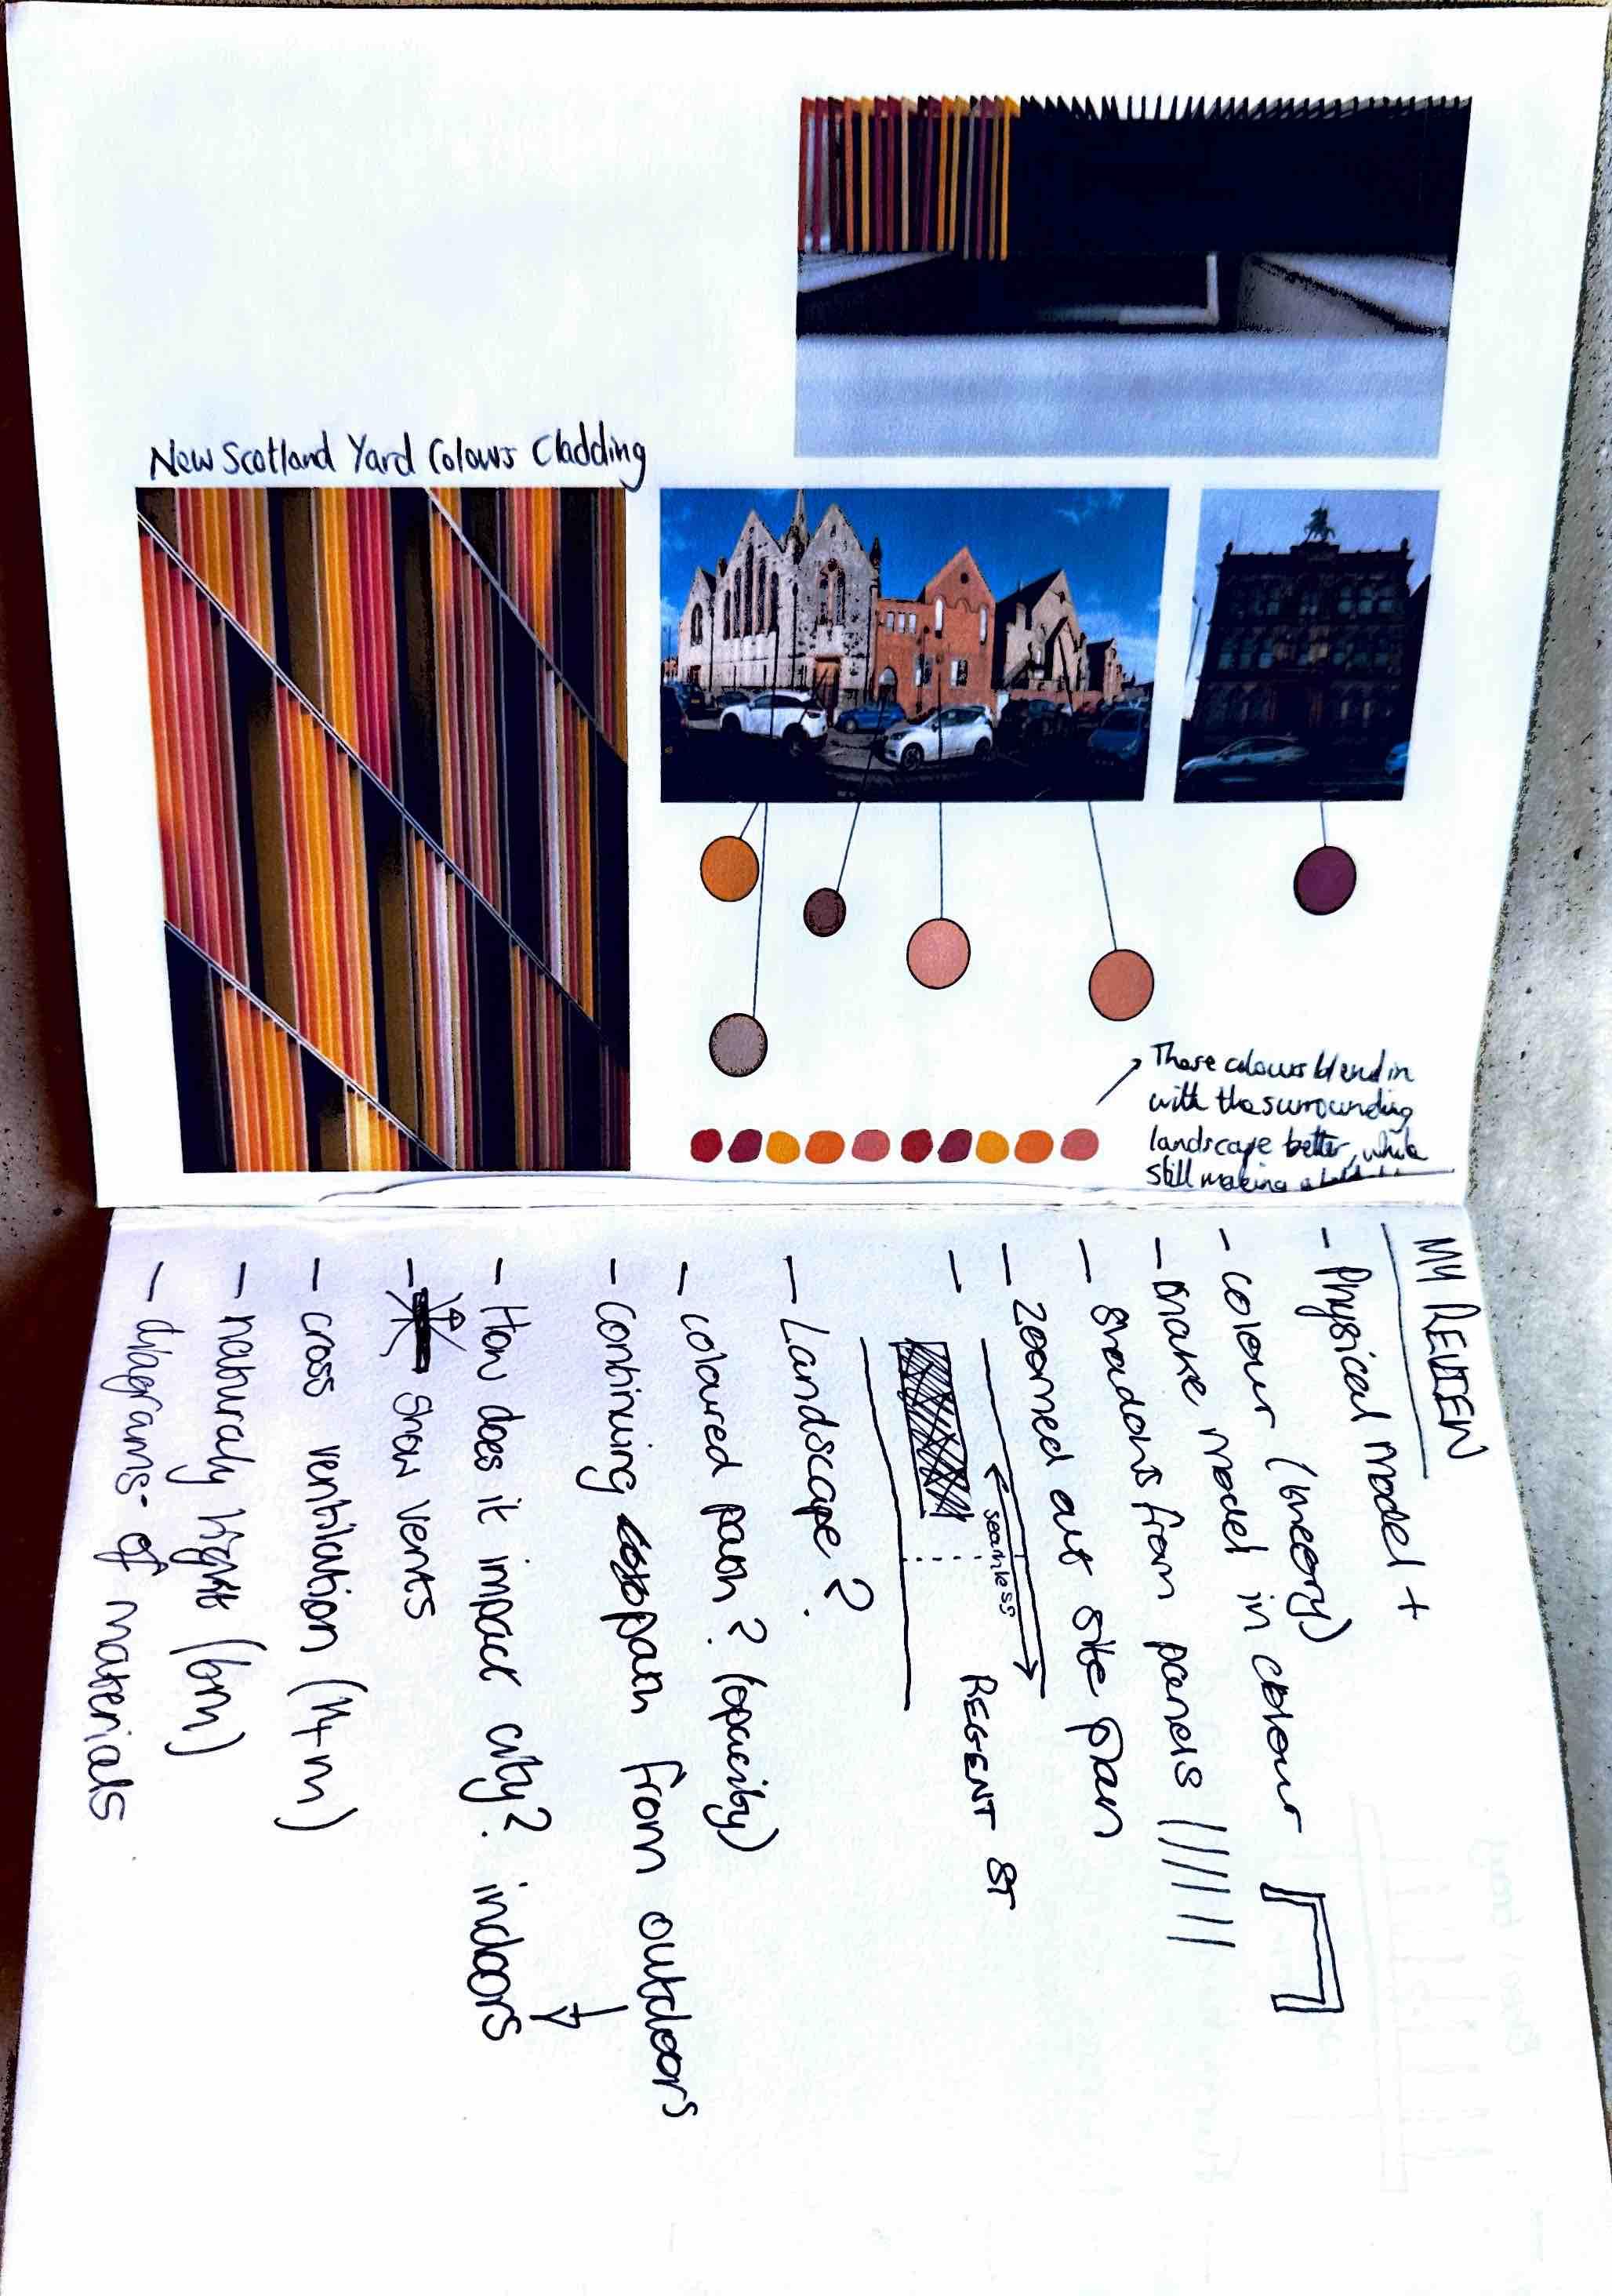 New Scotland Yard Colours Cladding
These colours blend in
with the surrounding
landscape better, while
still making a
MY REVIEW
- Physical model +
- colour (theory)
- make model in colour
- shadows from panels
- zoomed out site plan
seamless
REGENT ST
- Landscape?
- coloured path? (opacity)
- continuing path from outdoors
- How does it impact city? indoors
- show vents
- cross ventilation (14m)
- naturaly light (6m)
- diagrams of materials